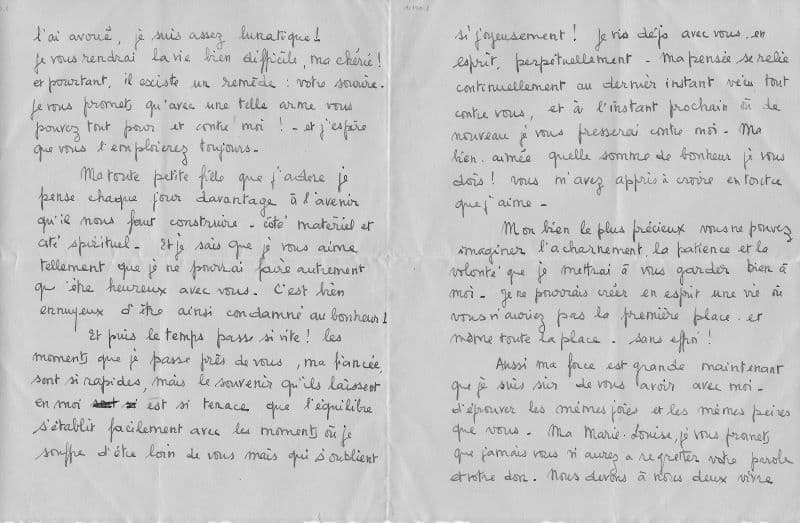 l'ai avoué, je suis assez lunatique !
Je vous rendrai la vie bien difficile, ma chérie !
et pourtant, il existe un remède : votre sourire.
Je vous promets qu'avec une telle arme vous
pouvez tout pour et contre moi ! - et j'espère
que vous l'emploierez toujours -
Ma toute petite fille que j'adore je
pense chaque jour davantage à l'avenir
qu'il nous faut construire - côté matériel et
côté spirituel - Et je sais que je vous aime
tellement que je ne pourrai faire autrement
qu'être heureux avec vous. C'est bien
ennuyeux d'être ainsi condamné au bonheur !
Et puis le temps passe si vite ! les
moments que je passe près de vous, ma fiancée,
sont si rapides, mais le souvenir qu'ils laissent
en moi est si tenace que l'équilibre
s'établit facilement avec les moments où je
souffre d'être loin de vous mais qui s'oublient
si joyeusement ! Je vis déjà avec vous, en
esprit, perpétuellement - Ma pensée se relie
continuellement au dernier instant vécu tout
contre vous, et à l'instant prochain où de
nouveau je vous presserai contre moi - Ma
bien-aimée quelle somme de bonheur je vous
dois ! vous m'avez appris à croire en tout ce
que j'aime -
Mon bien le plus précieux vous ne pouvez
imaginer l'acharnement, la patience et la
volonté que je mettrai à vous garder bien à
moi - Je ne pourrais créer en esprit une vie où
vous n'auriez pas la première place - et
même toute la place - sans effroi !
Aussi ma force est grande maintenant
que je suis sûr de vous avoir avec moi -
d'éprouver les mêmes joies et les mêmes peines
que vous - Ma Marie-Louise, je vous promets
que jamais vous n'aurez à regretter votre parole
et votre don. Nous devons à nous deux vivre